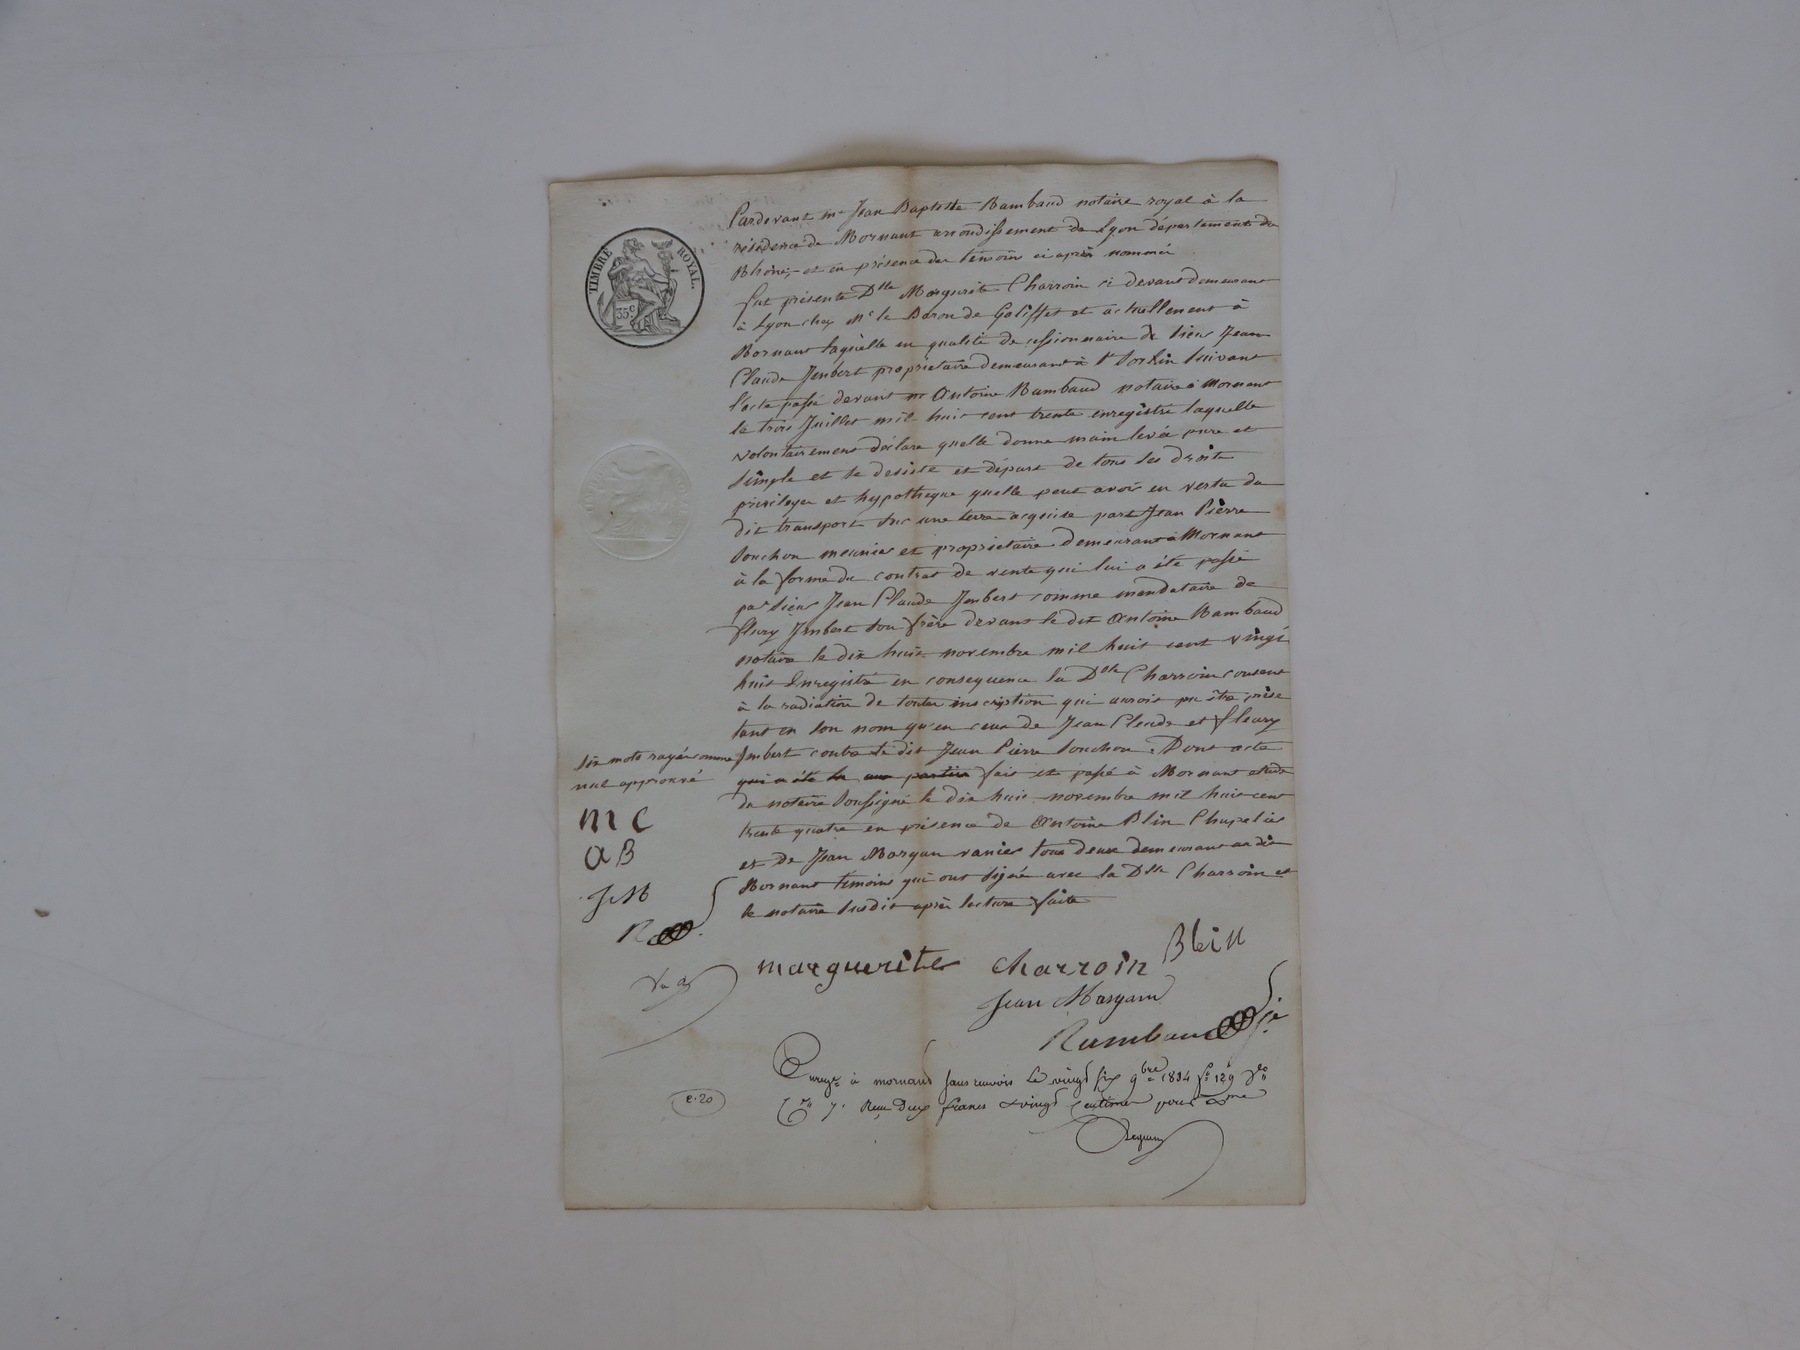 TIMBRE ROYAL.
35 c
Pardevant me Jean Baptiste Rambaud notaire royal à la
résidence de Mornant arrondissement de Lyon département du
Rhône, et en présence des témoins ci après nommés
fut présente Dlle Margurite Charroin ci devant demeurant
à Lyon chez Mr le Baron de Galiffet et actuellement à
Mornant laquelle en qualité de cessionnaire de sieur Jean
Claude Jmbert propriétaire demeurant à st Sorlin suivant
l'acte passé devant me Antoine Rambaud notaire à Mornant
le trois Juillet mil huit cent trente enregistré laquelle
volontairement déclare quelle donne main levée pure et
simple et se desiste et départ de tous les droits
privileges et hypotheque quelle peut avoir en vertu du
dit transport sur une terre acquise par Jean Pierre
Souchon meunier et proprietaire demeurant à Mornant
à la forme du contrat de vente qui lui a été passé
par sieur Jean Claude Jmbert comme mandataire de
fleury Jmbert son frère devant le dit Antoine Rambaud
notaire le dix huit novembre mil huit cent vingt
huit Enregistré en consequence la Dlle Charroin consent
à la radiation de toutes inscription qui auroit pu être prise
tant en son nom qu'en ceux de Jean Claude et fleury
Jmbert contre le dit Jean Pierre Souchon. Dont acte
qui a été lu aux parties fait et passé à Mornant etude
du notaire soussigné le dix huit novembre mil huit cent
trente quatre en présence de Antoine Blin Chapelier
et de Jean Margan vanier tous deux demeurant au dit
Mornant temoins qui ont signé avec la Dlle Charroin et
le notaire susdit après lecture faite
six mots rayés comme
nul approuvé
m c
a B
J M
R
marguerite charroin Blein
Jean Margan
Rambaud
Enregé à mornant sans renvois le vingt six 9bre 1834 fo 129 Vo
Cse 7. Reçu Deux francs & vingt centimes pour Dme
2.20